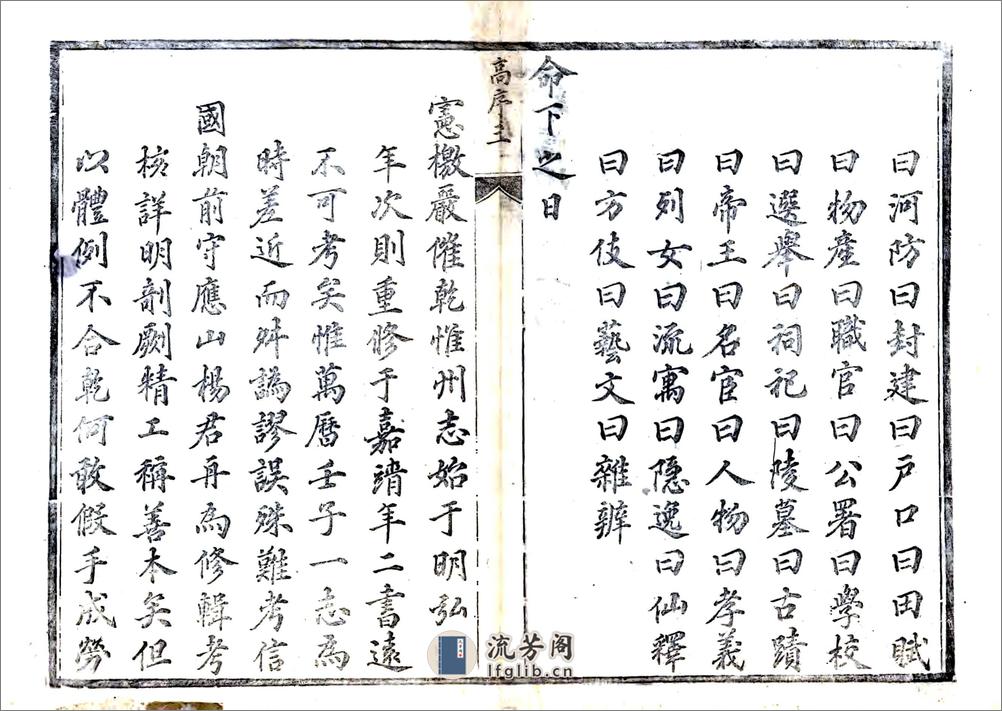 曰河防曰封建曰戶口曰田賦
曰物產曰職官曰公署曰學校
曰選舉曰祠祀曰陵墓曰古蹟
曰帝王曰名宦曰人物曰孝義
曰列女曰流寓曰隱逸曰仙釋
曰方伎曰藝文曰雜辨
命下之日
高序 三
憲檄嚴催乾惟州志始于明弘
年次則重修于嘉靖年二書遠
不可考矣惟萬曆壬子一志為
時差近而舛譌謬誤殊難考信
國朝前守應山楊君再為修輯考
核詳明剞劂精工稱善本矣但
以體例不合乾何敢假手成勞
流芳阁
lfglib.cn